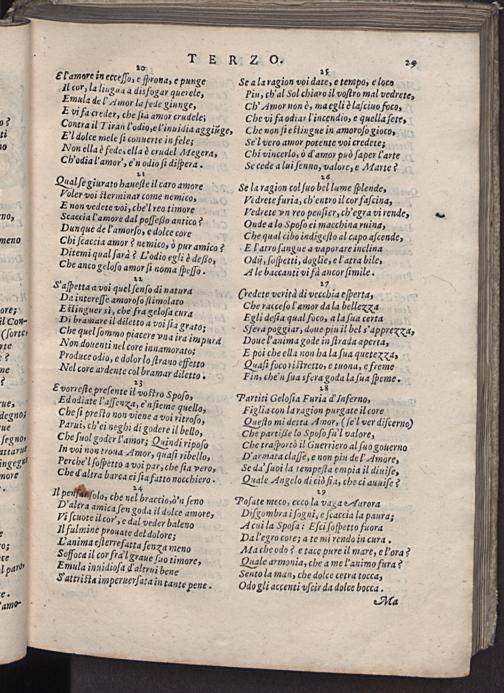 TERZO. 29
20
E l'amore in eccesso, e sprona, e punge
Il cor, la lingua a disfogar querele,
Emula de l'Amor la fede giunge,
E vi fa creder, che sia amor crudele;
Contra il Tiran l'odio, e l'inuidia aggiũge,
E'l dolce mele si conuerte in fele;
Non ella è fede, ella è crudel Megera,
Ch'odia l'amor', e'n odio si dispera.
21
Qual se giurato haueste il caro amore
Voler voi sterminar come nemico,
E non vedete voi, che'l reo timore
Scaccia l'amore dal possesso antico?
Dunque de l'amorso, e dolce core
Chi scaccia amor? nemico, ò pur amico?
Ditemi qual sarà? L'odio egli è desso,
Che anco geloso amor si noma spesso.
22
S'aspetta a voi quel senso di natura
Da interesse amoroso stimolato
Estinguer sì, che fra gelosa cura
Di bramare il diletto a voi sia grato;
Che quel sommo piacere vna ira impura
Non douenti nel core innamorato;
Produce odio, e dolor lo strano effetto
Nel core ardente col bramar diletto.
23
E vorreste presente il vostro Sposo,
Ed odiate l'assenza, e'nsieme quello,
Che sì presto non viene a voi ritroso,
Parui, ch'ei neghi di godere il bello,
Che suol goder l'amor; Quindi riposo
In voi non troua Amor, quasi ribello,
Perche'l sospetto a voi par, che sia vero,
Che d'altra barca ei sia fatto nocchiero.
24
Il pensar solo, che nel braccio, ò'n seno
D'altra amica sen goda il dolce amore,
Vi scuote il cor', e dal veder baleno
Il fulmine prouate del dolore;
L'anima esterrefatta senza meno
Soffoca il cor fra'l graue suo timore,
Emula inuidiosa d'altrui bene
S'attrista imperuersata in tante pene.
25
Se a la ragion voi date, e tempo, e loco
Piu, ch'al Sol chiaro il vostro mal vedrete,
Ch'Amor non è, ma egli è lasciuo foco,
Che vi fa odiar l'incendio, e quella sete,
Che non si estingue in amoroso gioco,
Se'l vero amor potente voi credete;
Chi vincerlo, ò d'amor può saper l'arte
Se cede a lui senno, valore, e Marte?
26
Se la ragion col suo bel lume splende,
Vedrete furia, ch'entro il cor fascina,
Vedrete vn reo pensier, ch'egra vi rende,
Onde a lo Sposo ei macchina ruina,
Che qual cibo indigesto al capo ascende,
E l'atro sangue a vaporare inclina
Odij, sospetti, doglie, e l'atra bile,
A le baccanti vi fà ancor simile.
27
Credete verità di vecchia esperta,
Che raccoso l'amor da la bellezza
Egli desia qual foco, a la sua certa
Sfera poggiar, doue piu il bel s'apprezza,
Doue l'anima gode in strada aperta,
E poi che ella non ha la sua quetezza,
Quasi foco ristretto, e tuona, e freme
Fin, che'n sua sfera goda la sua speme.
28
Partiti Gelosia Furia d'Inferno,
Figlia con la ragion purgate il core
Questo mi detta Amor, (se'l ver discerno)
Che partisse lo Sposo fù'l valore,
Che trasportò il Guerriero al suo gouerno
D'armata classe, e non piu de l'Amore,
Se da' suoi la tempesta empia il diuise,
Quale Angelo di ciò fia, che ci auuise?
29
Posate meco, ecco la vaga Aurora
Disgombra i sogni, e scaccia la paura;
A cui la Sposa: Esci sospetto fuora
Da l'egro core; a te mi rendo in cura.
Ma che odo? e tace pure il mare, e l'ora?
Quale armonia, che a me l'animo fura?
Sento la man, che dolce cetra tocca,
Odo gli accenti vscir da dolce bocca.
Ma